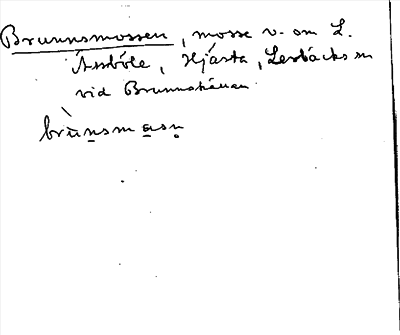 Brunnsmossen, mosse v. om L.
Åssböle, Hjärta, Lerbäcks sn
vid Brunnskällan
brùn̲sma̲sṇ